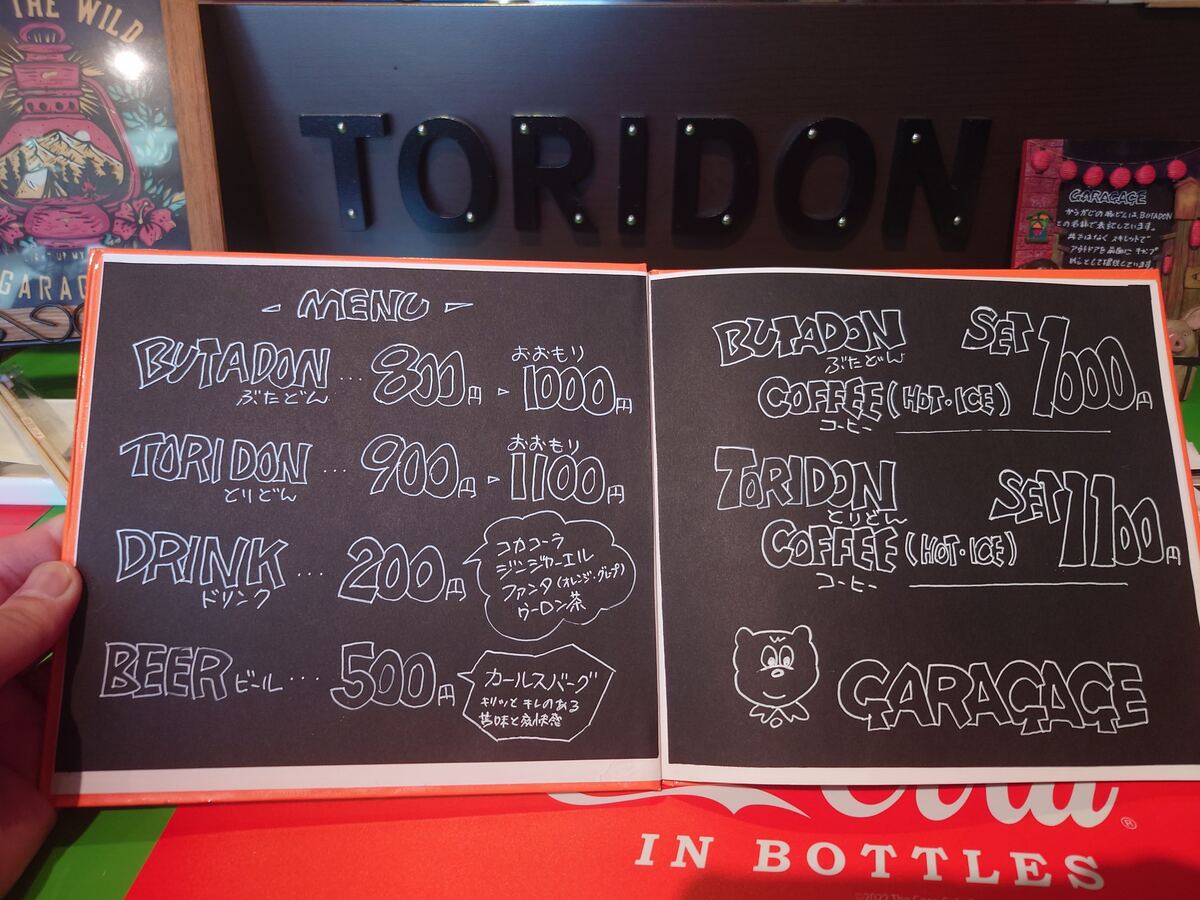 THE WILD
GARAG
TORIDON
GARAGAGE
からがどの豚どんは、BUTADON
この名称で表記しています。
丼ではなく スキレットで
アウトドアを前面に
- MENU -
BUTADON ... 800円 ▷ おおもり 1000円
ぶたどん
TORIDON ... 900円 ▷ おおもり 1100円
とりどん
DRINK ... 200円
ドリンク
コカコーラ
ジンジャーエール
ファンタ(オレンジ・グレープ)
ウーロン茶
BEER ビール ... 500円
カールスバーグ
キリッと キレのある
苦味と爽快感
BUTADON SET 1000円
ぶたどん
COFFEE (HOT・ICE)
コーヒー
TORIDON SET 1100円
とりどん
COFFEE (HOT・ICE)
コーヒー
GARAGAGE
Cola
IN BOTTLES